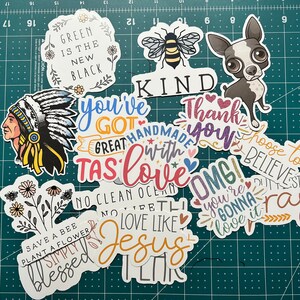 GREEN
IS THE
NEW
BLACK
KIND
you've
GOT
GREAT
TAS
HANDMADE
with
love
Thank
you
OMG!
you're
GONNA
love it
choose to
BELIEVE
SAVE A BEE
PLANT A FLOWER
SIMPLY
blessed
NO CLEAN OCEAN
NO
LOVE LIKE
Jesus